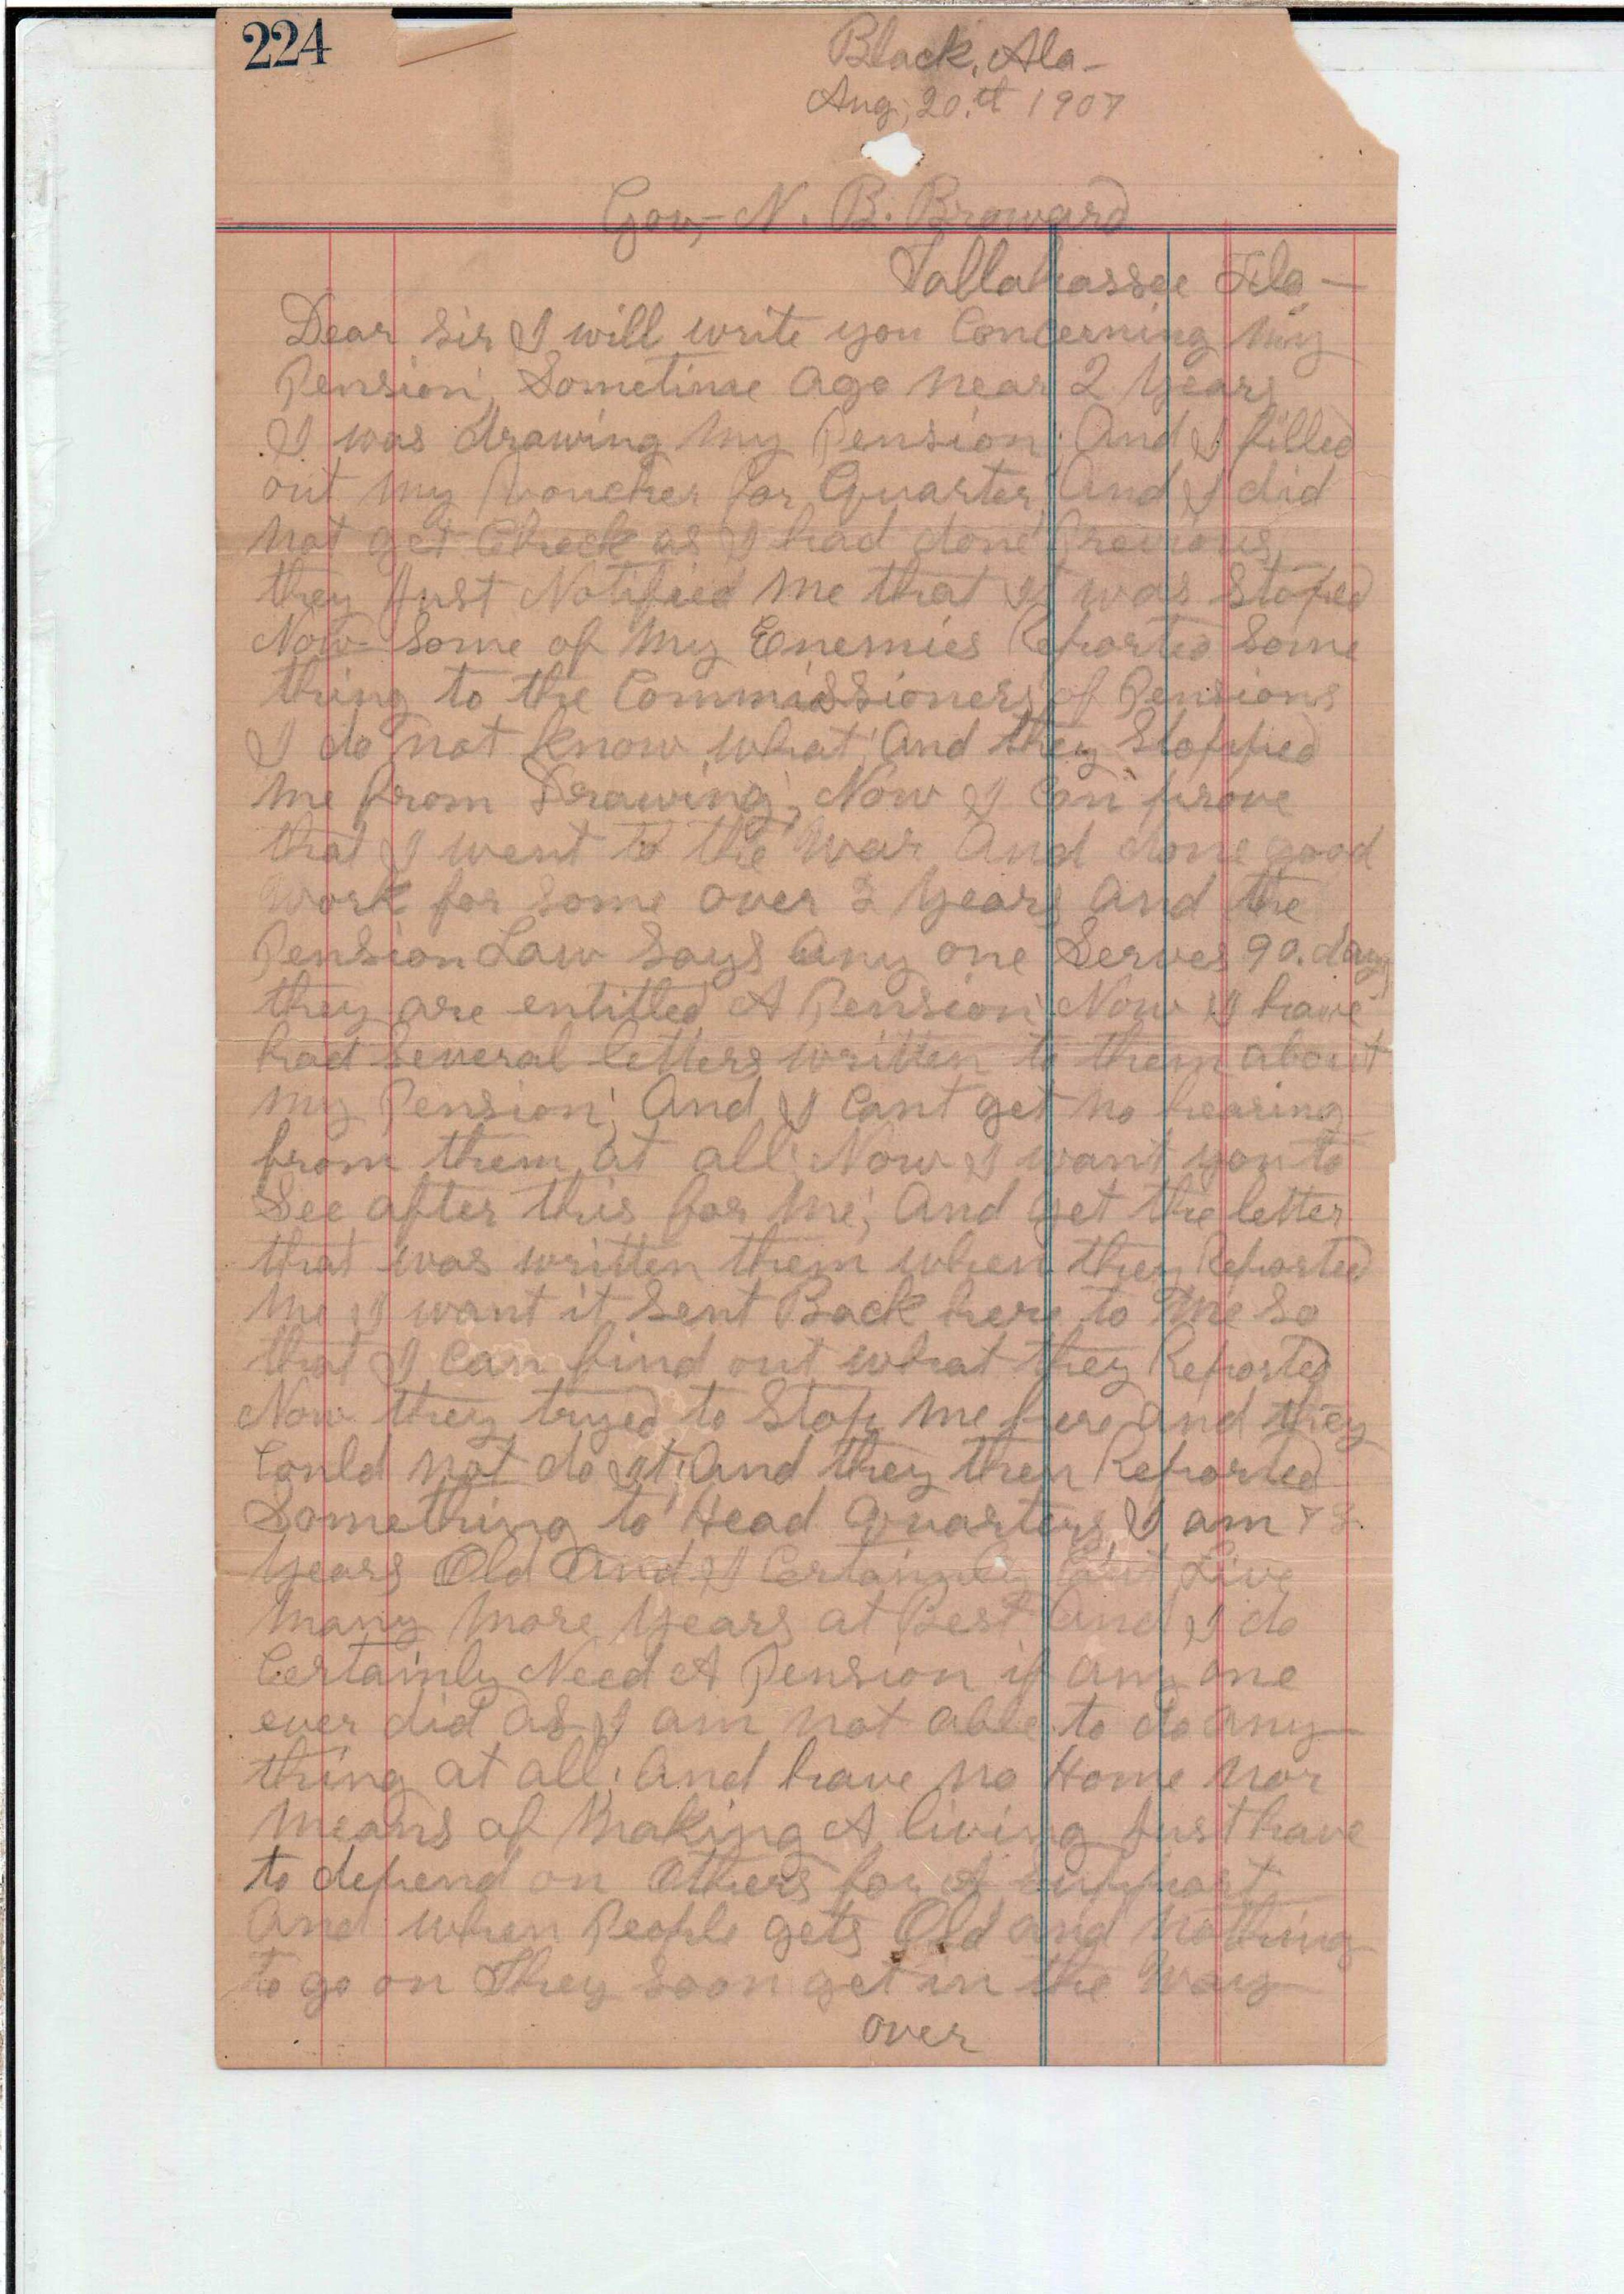 224
Black, Ala -
Aug, 20.th 1907
Gov, - N. B. Broward
Tallahassee Fla -
Dear Sir I will write you Concerning My
Pension, Sometime Ago Near 2 Years
I was drawing My Pension. And I filled
out My Voucher for Quarter, And I did
Not get Check as I had done Previous,
they Just Notified Me that It was Stoped
Now - Some of My Enemies Reported Some
thing to the Commissioners of Pensions
I do Not Know what, And they Stopped
Me from Drawing, Now I Can prove
that I went to the War And done good
Work for Some over 2 Years And the
Pension Law Says Any one Serves 90. days
they are entitled A Pension, Now I have
had several letters written to them about
My Pension, And I Cant get No hearing
from them at all, Now I want you to
See after this for Me; And get the letter
that was written them when they Reported
Me I want it Sent Back here to Me So
that I Can find out what they Reported
Now they tryed to Stop Me here And they
Could Not do It, And they then Reported
Something to Head Quarters, I am
Years Old And I Certainly Cant Live
Many More Years at Best And I do
Certainly Need A Pension if Any one
ever did As I am Not able to do Any-
thing at all, And have No Home Nor
Means of Making A living Just have
to depend on Others for A Support
And when People gets Old And Nothing
to go on They soon get in the Way
over